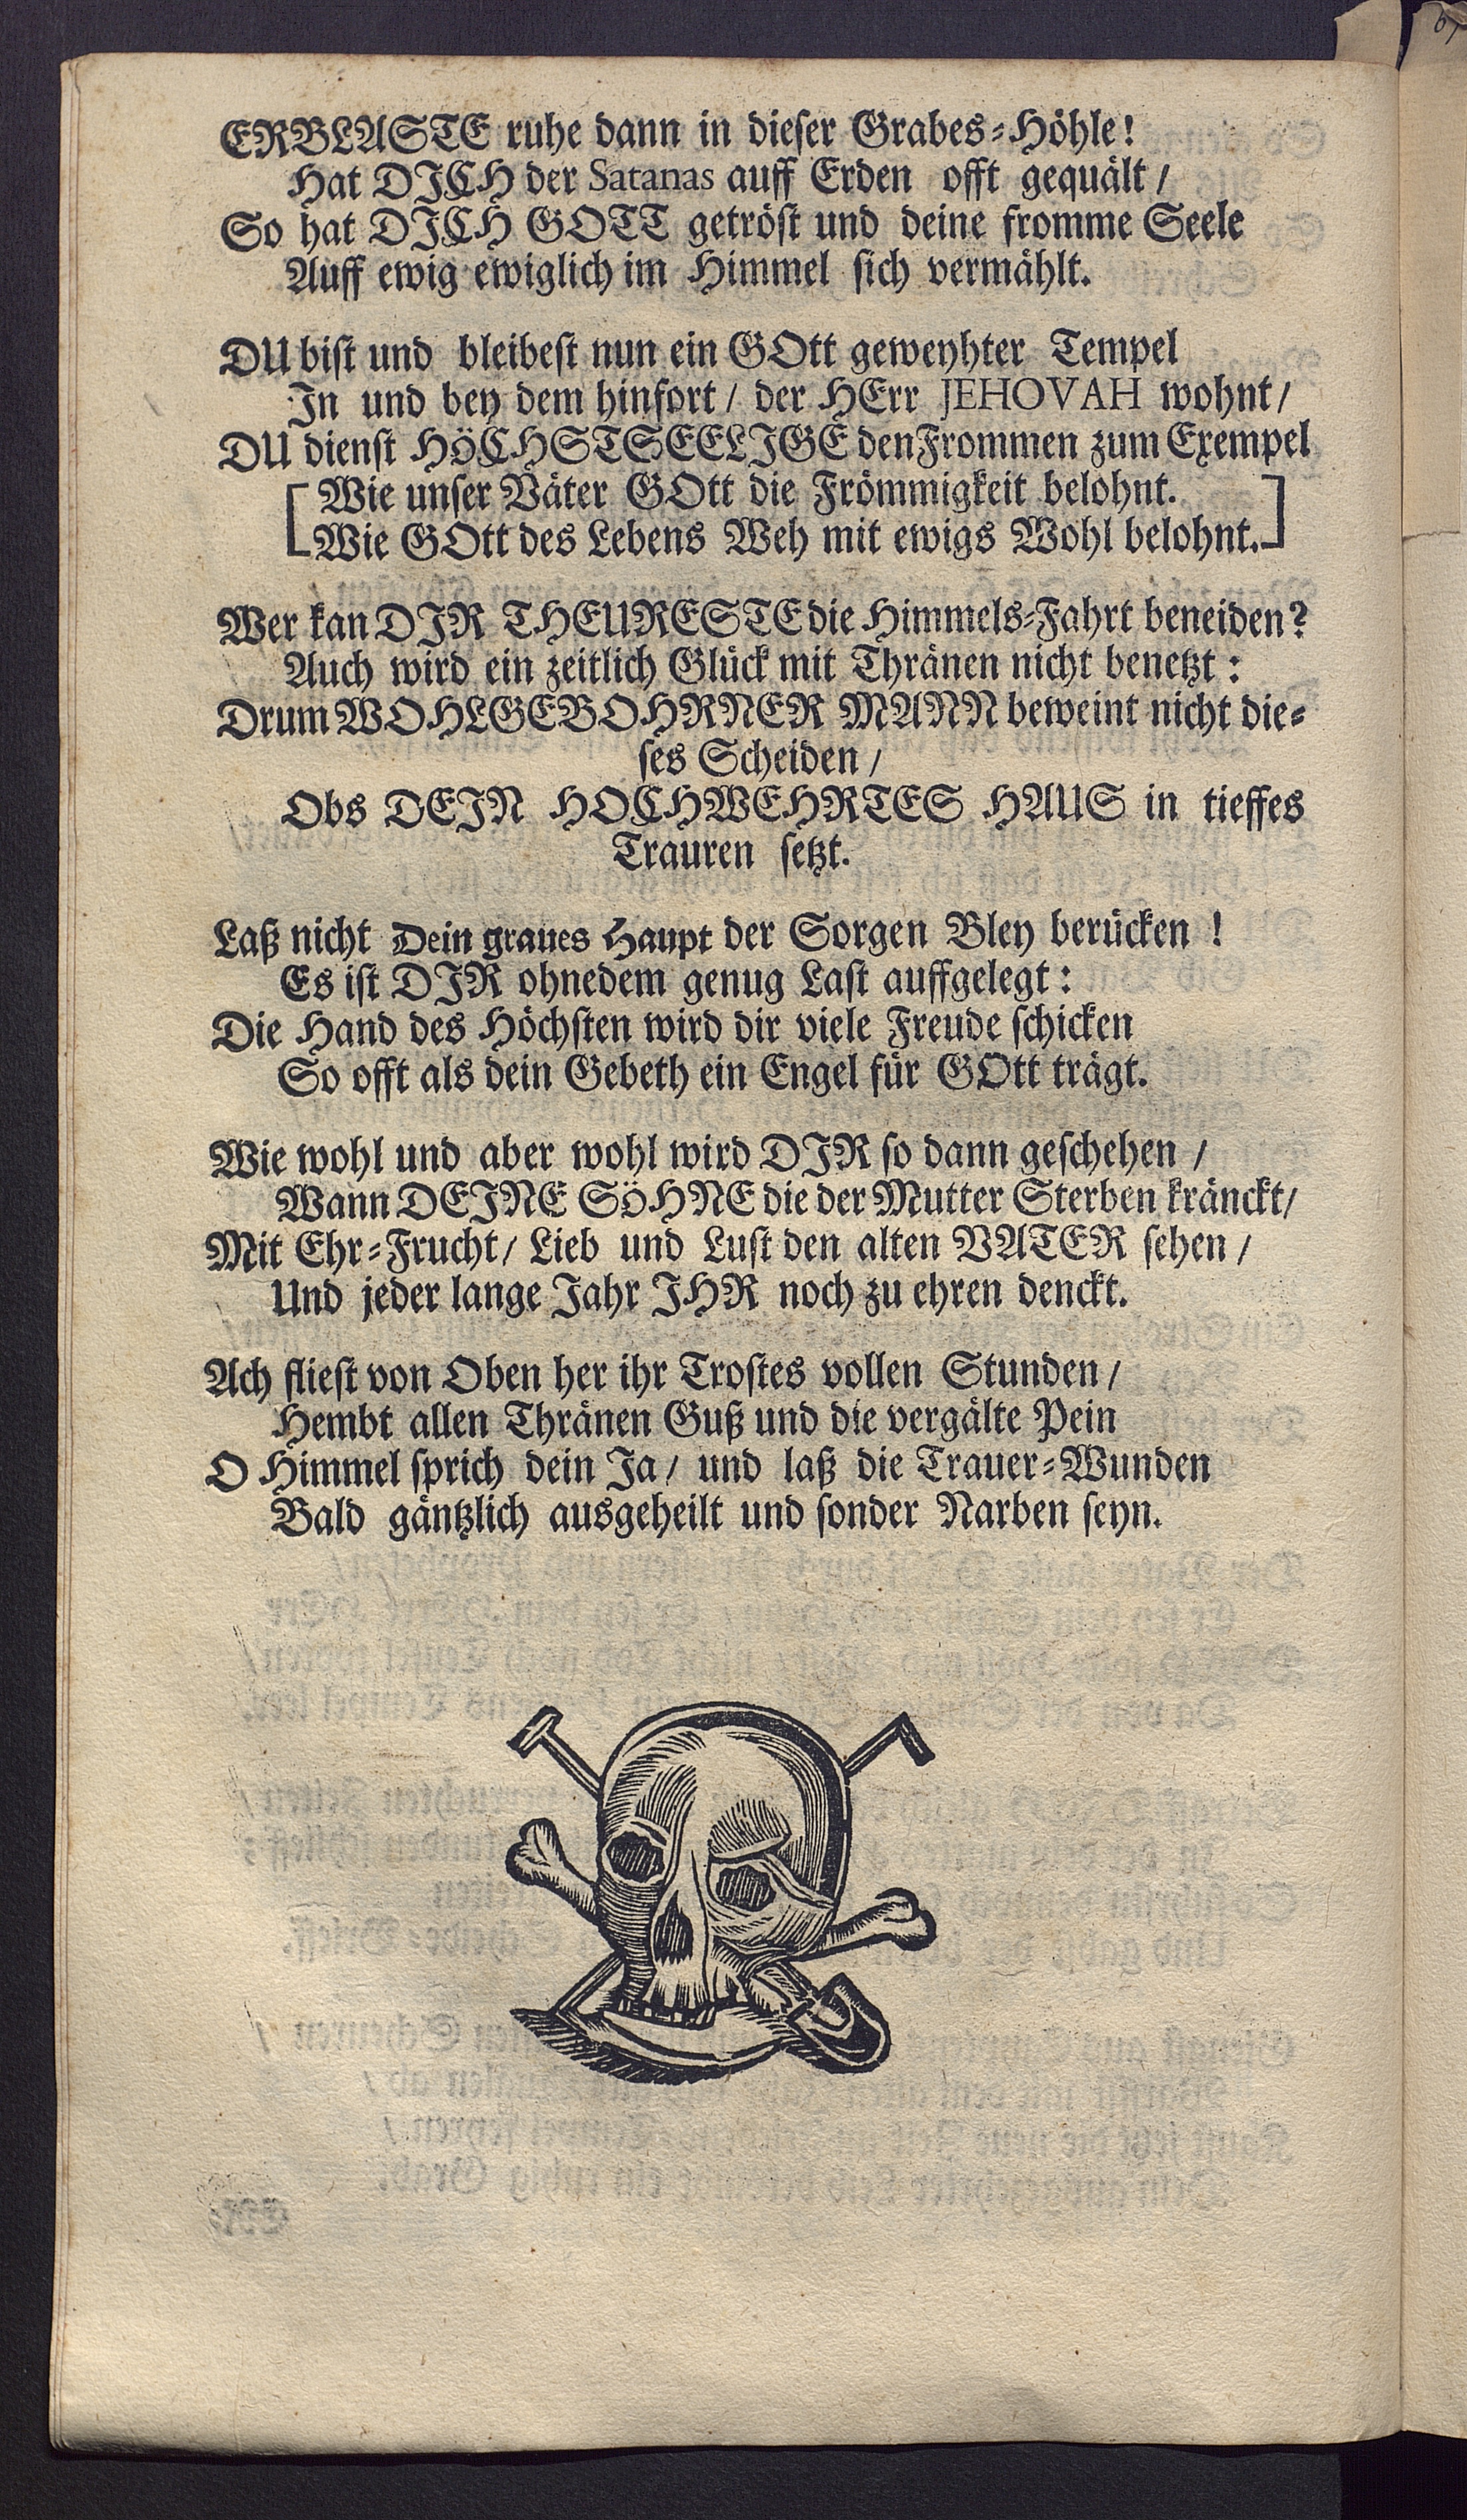 ERBLASTE ruhe dann in dieser Grabes-Höhle!
Hat DICH der Satanas auff Erden offt gequält /
So hat DICH GOTT getröst und deine fromme Seele
Auff ewig ewiglich im Himmel sich vermählt.
DU bist und bleibest nun ein GOtt geweyhter Tempel
In und bey dem hinfort / der HErr JEHOVAH wohnt /
DU dienst HÖCHSTSEELIGE den Frommen zum Exempel
[Wie unser Väter GOtt die Frömmigkeit belohnt.
Wie GOtt des Lebens Weh mit ewigs Wohl belohnt.]
Wer kan DIR THEURESTE die Himmels-Fahrt beneiden?
Auch wird ein zeitlich Glück mit Thränen nicht benetzt:
Drum WOHLGEBOHRNER MANN beweint nicht die-
ses Scheiden /
Obs DEIN HOCHWEHRTES HAUS in tieffes
Trauren setzt.
Laß nicht Dein graues Haupt der Sorgen Bley berücken !
Es ist DIR ohnedem genug Last auffgelegt:
Die Hand des Höchsten wird dir viele Freude schicken
So offt als dein Gebeth ein Engel für GOtt trägt.
Wie wohl und aber wohl wird DIR so dann geschehen /
Wann DEINE SÖHNE die der Mutter Sterben kränckt /
Mit Ehr-Frucht / Lieb und Lust den alten VATER sehen /
Und jeder lange Jahr IHR noch zu ehren denckt.
Ach fliest von Oben her ihr Trostes vollen Stunden /
Hembt allen Thränen Guß und die vergälte Pein
O Himmel sprich dein Ja / und laß die Trauer-Wunden
Bald gäntzlich ausgeheilt und sonder Narben seyn.